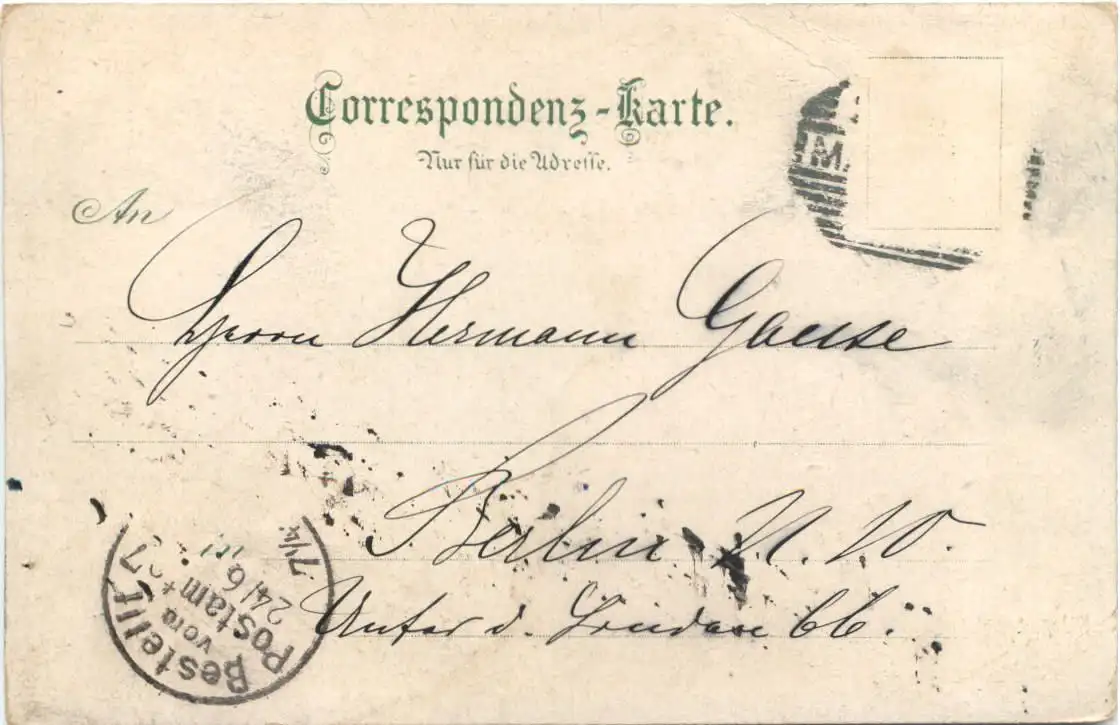 Correspondenz-Karte.
Nur für die Adresse.
M.
An
Herrn Hermann Gause
Berlin N. W.
in
Unter d. Linden 66.
Bestellt
vom
Postamt
24/6
7 1/4